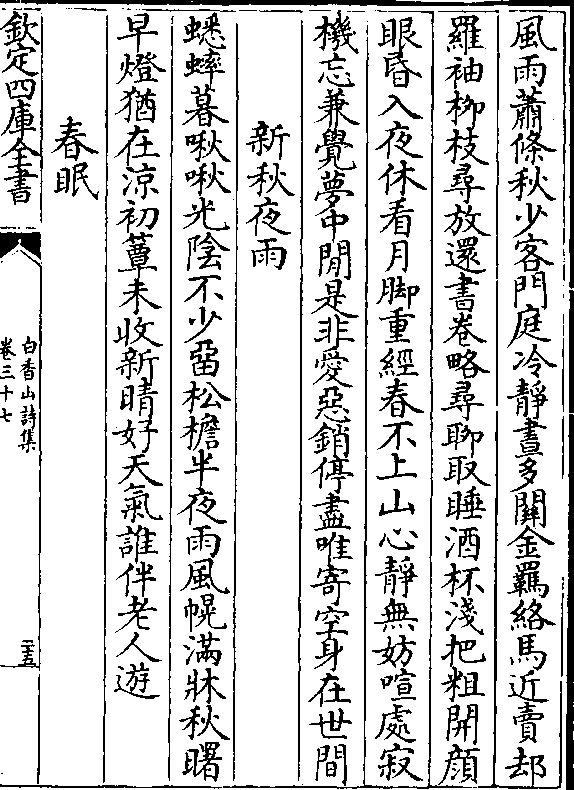 風雨蕭條秋少客門庭冷靜晝多關金羈絡馬近賣却
羅袖柳枝尋放還書卷略尋聊取睡酒杯淺把粗開顔
眼昏入夜休看月脚重經春不上山心靜無妨喧處寂
機忘兼覺夢中閒是非愛惡銷停盡唯寄空身在世間
新秋夜雨
蟋蟀暮啾啾光陰不少畱松檐半夜雨風幌滿牀秋曙
早燈猶在涼初蕈未收新晴好天氣誰伴老人遊
春眠
欽定四庫全書
白香山詩集
卷三十七
二十五